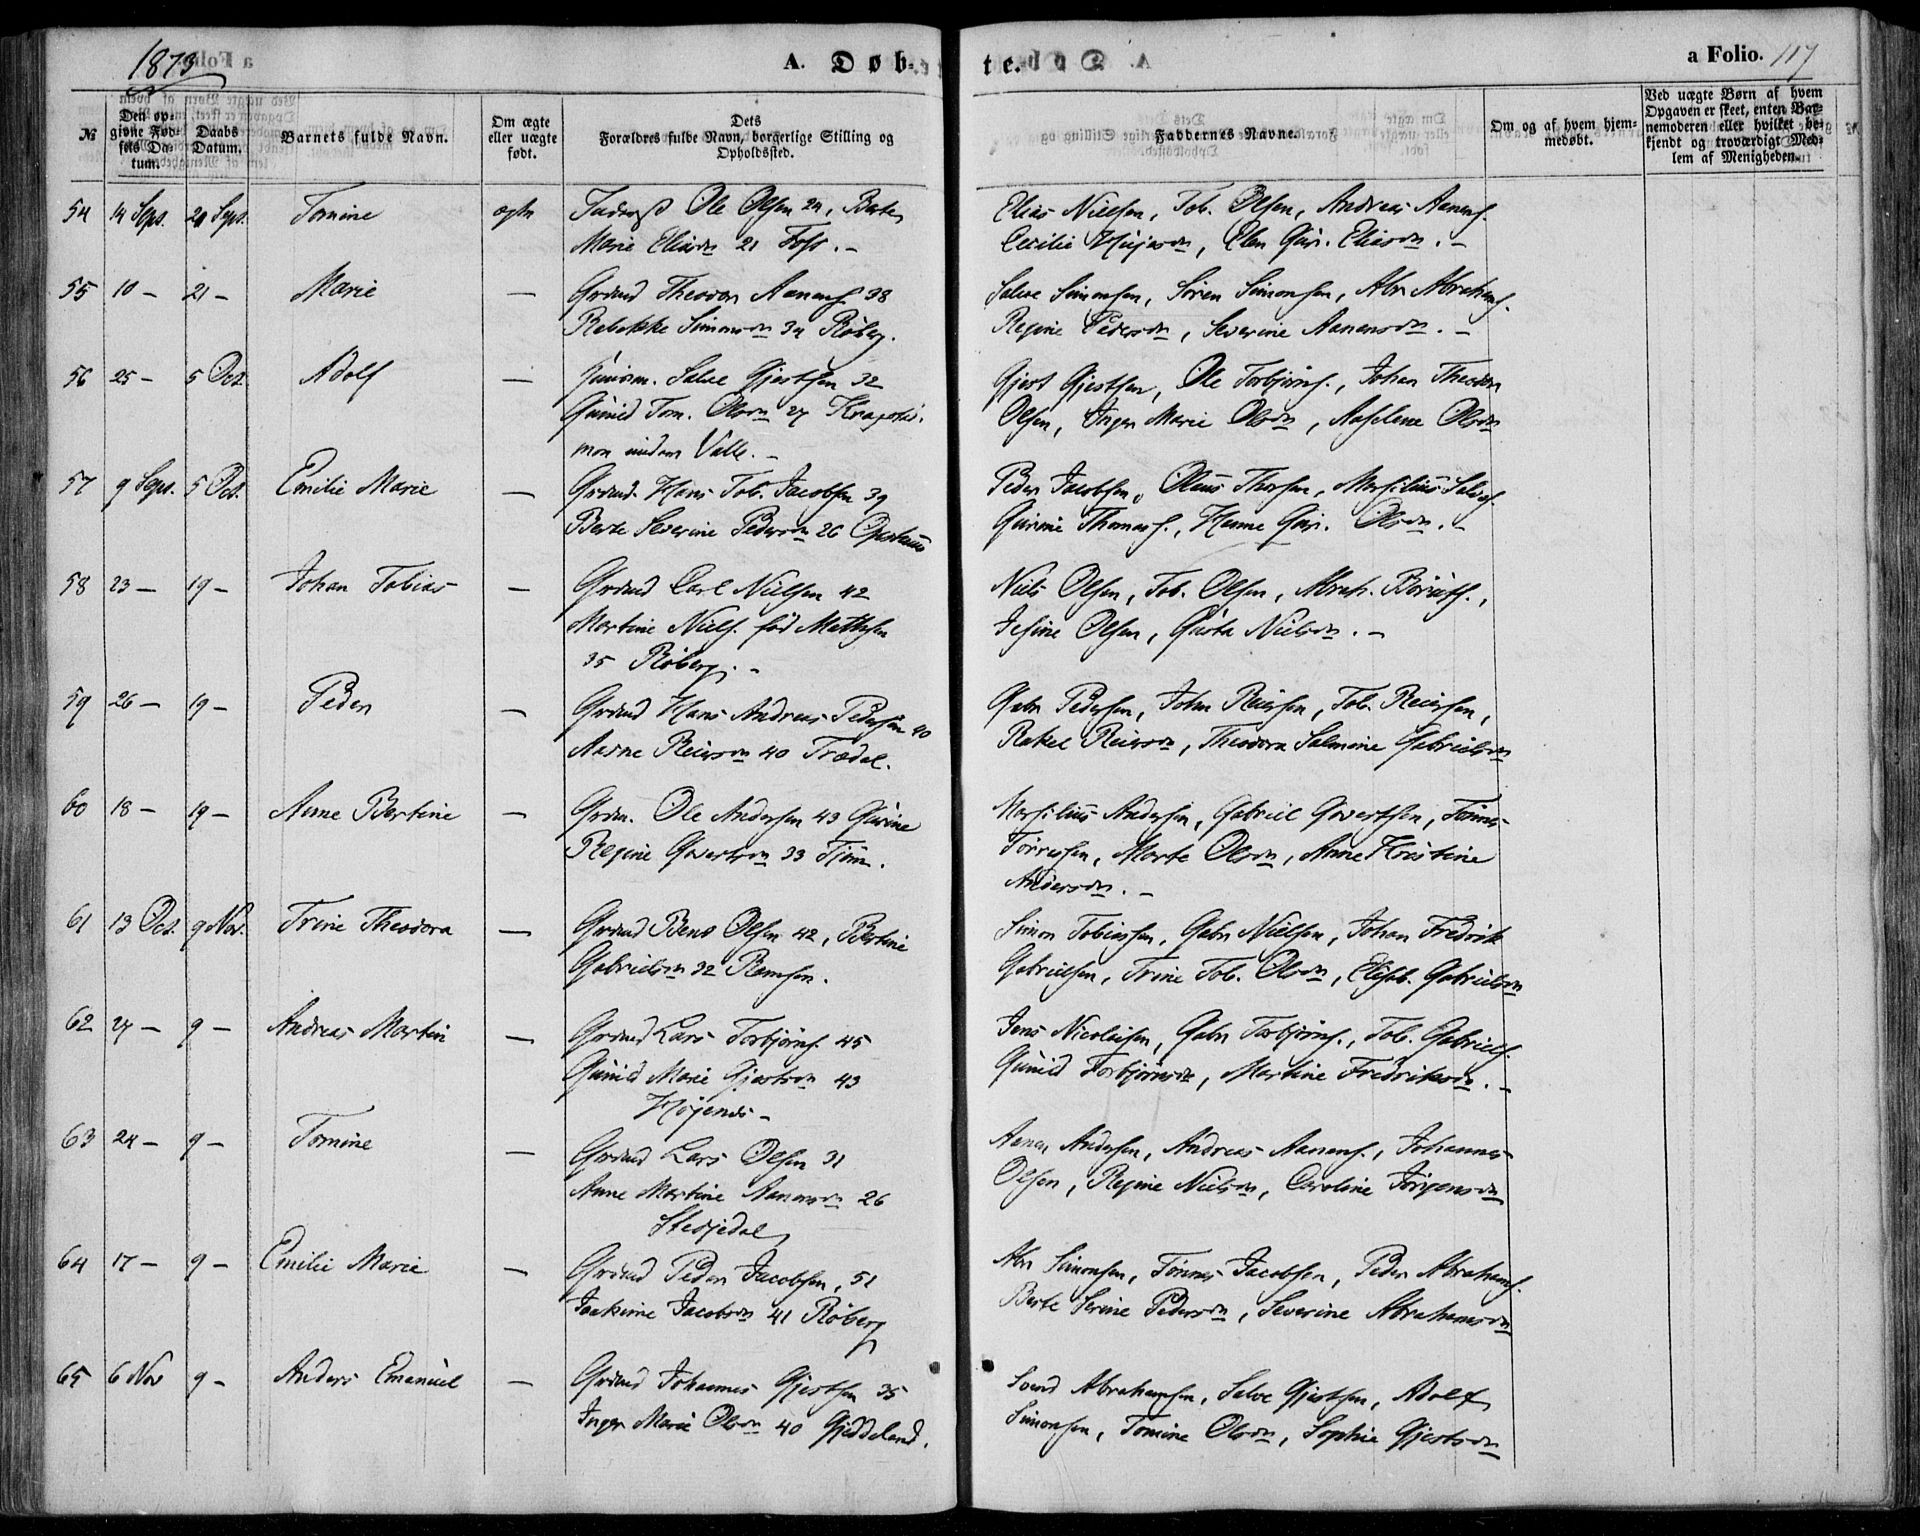 1873
A. Døb-
te.
a Folio. 117
№
Den op-
givne Fød-
sels Da-
tum.
Daabs
Datum.
Barnets fulde Navn.
Om ægte
eller uægte
født.
Dets
Forældres fulde Navn, borgerlige Stilling og
Opholdssted.
Faddernes Navne.
Om og af hvem hjem-
medøbt.
Ved uægte Børn af hvem
Opgaven er skeet, enten Bar-
nemoderen eller hvilket be-
kjendt og troværdigt Med-
lem af Menigheden.
54 14 Sept. 21 Sept. Tomine ægte Ole Olsen 24, Berte
Marie Eliasdn 21 Foss. –
Elias Nielsen, Tob. Olsen, Andreas Aanens.
Cecilie, Elen Gur. Eliasdn. –
55 10 – 21 – Marie — Grdmd Theodor Aanens. 38
Rebekke Simonsdn 34 Røberg.
Salve Simonsen, Søren Simonsen, Abr Abrahams.
Regine Pedersdn, Severine Aanensdn. –
56 25 – 5 Oct. Adolf — Salve Gjertsen 32
Gunild Tom. Olsdn 27
mon under Valle. –
Gjert Gjertsen, Ole Torbjørns., Johan Theodor
Olsen, Inger Marie Olsdn, Olsdn
57 9 Sept. 5 Oct. Emilie Marie — Grdmd. Hans Tob. Jacobsen 39
Berte Severine Pedersdn 26
Peder Jacobsen, Olaus Thorsen, Marsilius Salves.
Gurine Thomass., Hanne Gur. Olsdn. –
58 23 – 19 – Johan Tobias — Grdmd Carl Nielsen 42
Martine Niels. fød Mathsen
35 Røberg. –
Niels Olsen, Tob. Olsen, Abrah.
Jesine Olsen, Gusta Nielsdn. –
59 26 – 19 – Peder — Grdmd Hans Andreas Pedersen 40
Aasne Reiersdn 40 Trædal.
Gabr Pedersen, John Reiersen, Tob. Reiersen,
Rakel Reiersdn, Theodora Salmine Gabrielsdn
60 18 – 19 – Anne Bertine — Grdm. Ole Andersen 43 Gurine
Regine Govertsdn 33 Tjom.
Marsilius Andersen, Gabriel Govertsen, Tønnes
Tørresen, Marte Olsdn, Anne Kristine
Andersdn. –
61 13 Oct. 9 Nov. Trine Theodora — Grdmd Bent Olsen 42, Bertine
Gabrielsdn 32 Ramsen.
Simon Tobiassen, Gabr Nielsen, Johan Fredrik
Gabrielsen, Trine Tob. Olsdn, Elisb. Gabrielsdn
62 27 – 9 – Andreas Martin — Grdmd Lars Torbjørns. 45
Gunild Marie Gjertsdn 43
Jens Nicolaisen, Gabr Torbjørns., Tob. Gabriels.
Gunild Torbjørnsdn, Martine Fredriksdn. –
63 24 – 9 – Tomine — Grdmd Lars Olsen 31
Anne Martine Aanensdn 26
Aanen Andersen, Andreas Aanens., Johannes
Olsen, Regine Nielsdn, Caroline Jørgensdn
64 17 – 9 – Emilie Marie — Grdmd Peder Jacobsen, 51
Joakime Jacobsdn 41 Røberg
Abr Simonsen, Tønnes Jacobsen, Peder Abrahams.
Berte Serine Pedersdn, Severine Abrahamsdn
65 6 Nov 9 – Anders Emanuel — Grdmd Johannes Gjertsen 35
Inger Marie Olsdn 40 Gjeddeland.
Svend Abrahamsen, Salve Gjertsen, Adolf
Simonsen, Tomine Olsdn, Sophie Gjertsdn